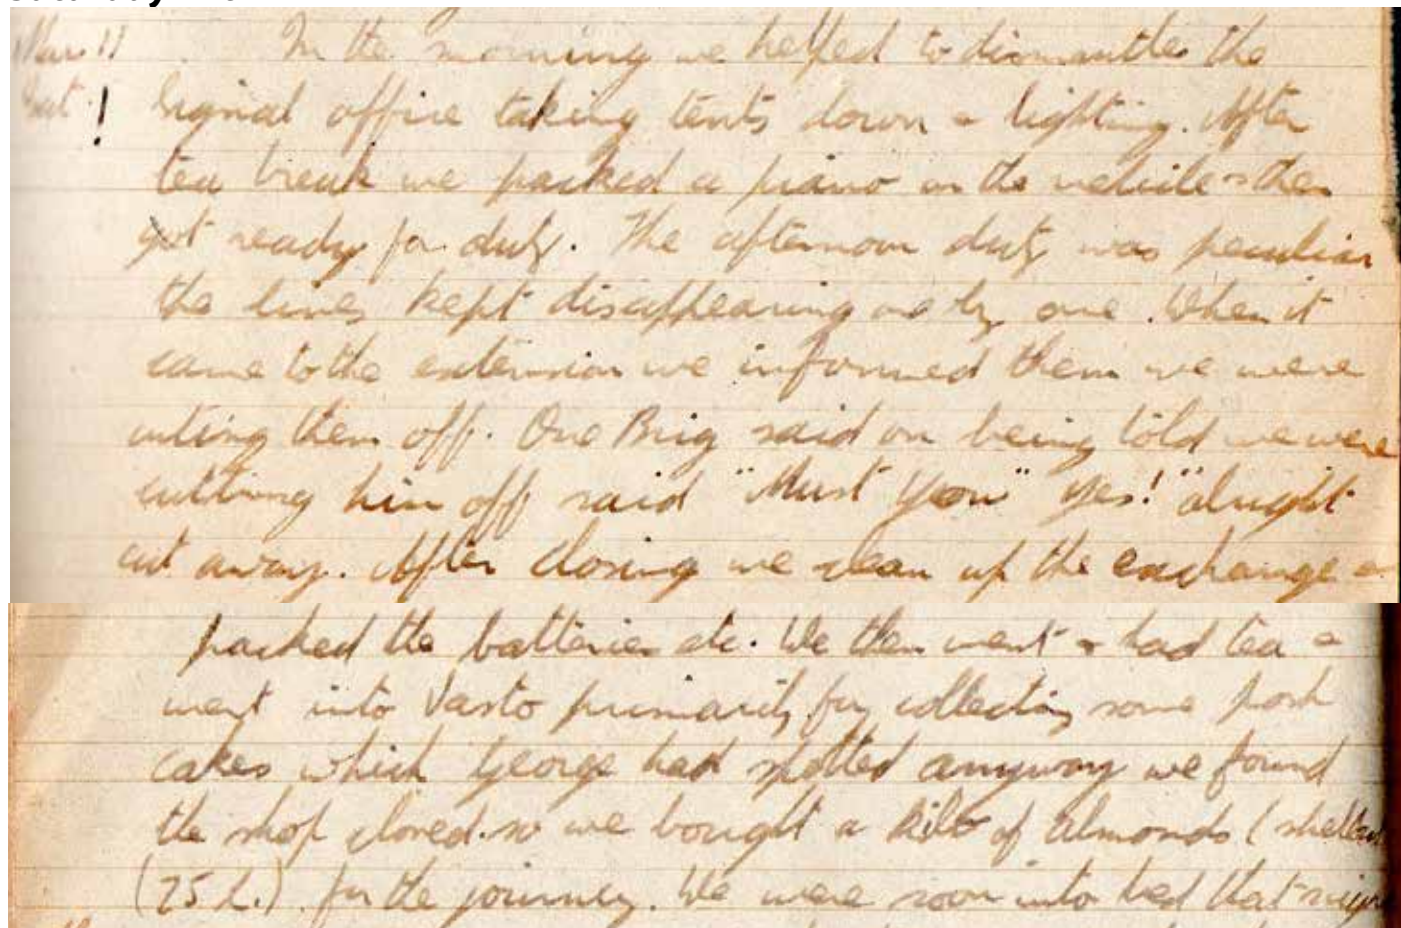 Mar 11 In the morning we helped to dismantle the
Sat ! Signal office taking tents down & lighting. After
tea break we packed a piano on the vehicle & then
got ready for duty. The afternoon duty was peculiar
the lines kept disappearing one by one. When it
came to the extension we informed them we were
cutting them off. One Brig said on being told we were
cutting him off said "Must you" yes! "alright
cut away. After closing we clean up the exchange &
packed the batteries etc. We then went & had tea &
went into Vasto primarily for collecting some posh
cakes which George had spotted anyway we found
the shop closed. so we bought a kilo of almonds (shelled
(75 L.) for the journey. We were soon into bed that night